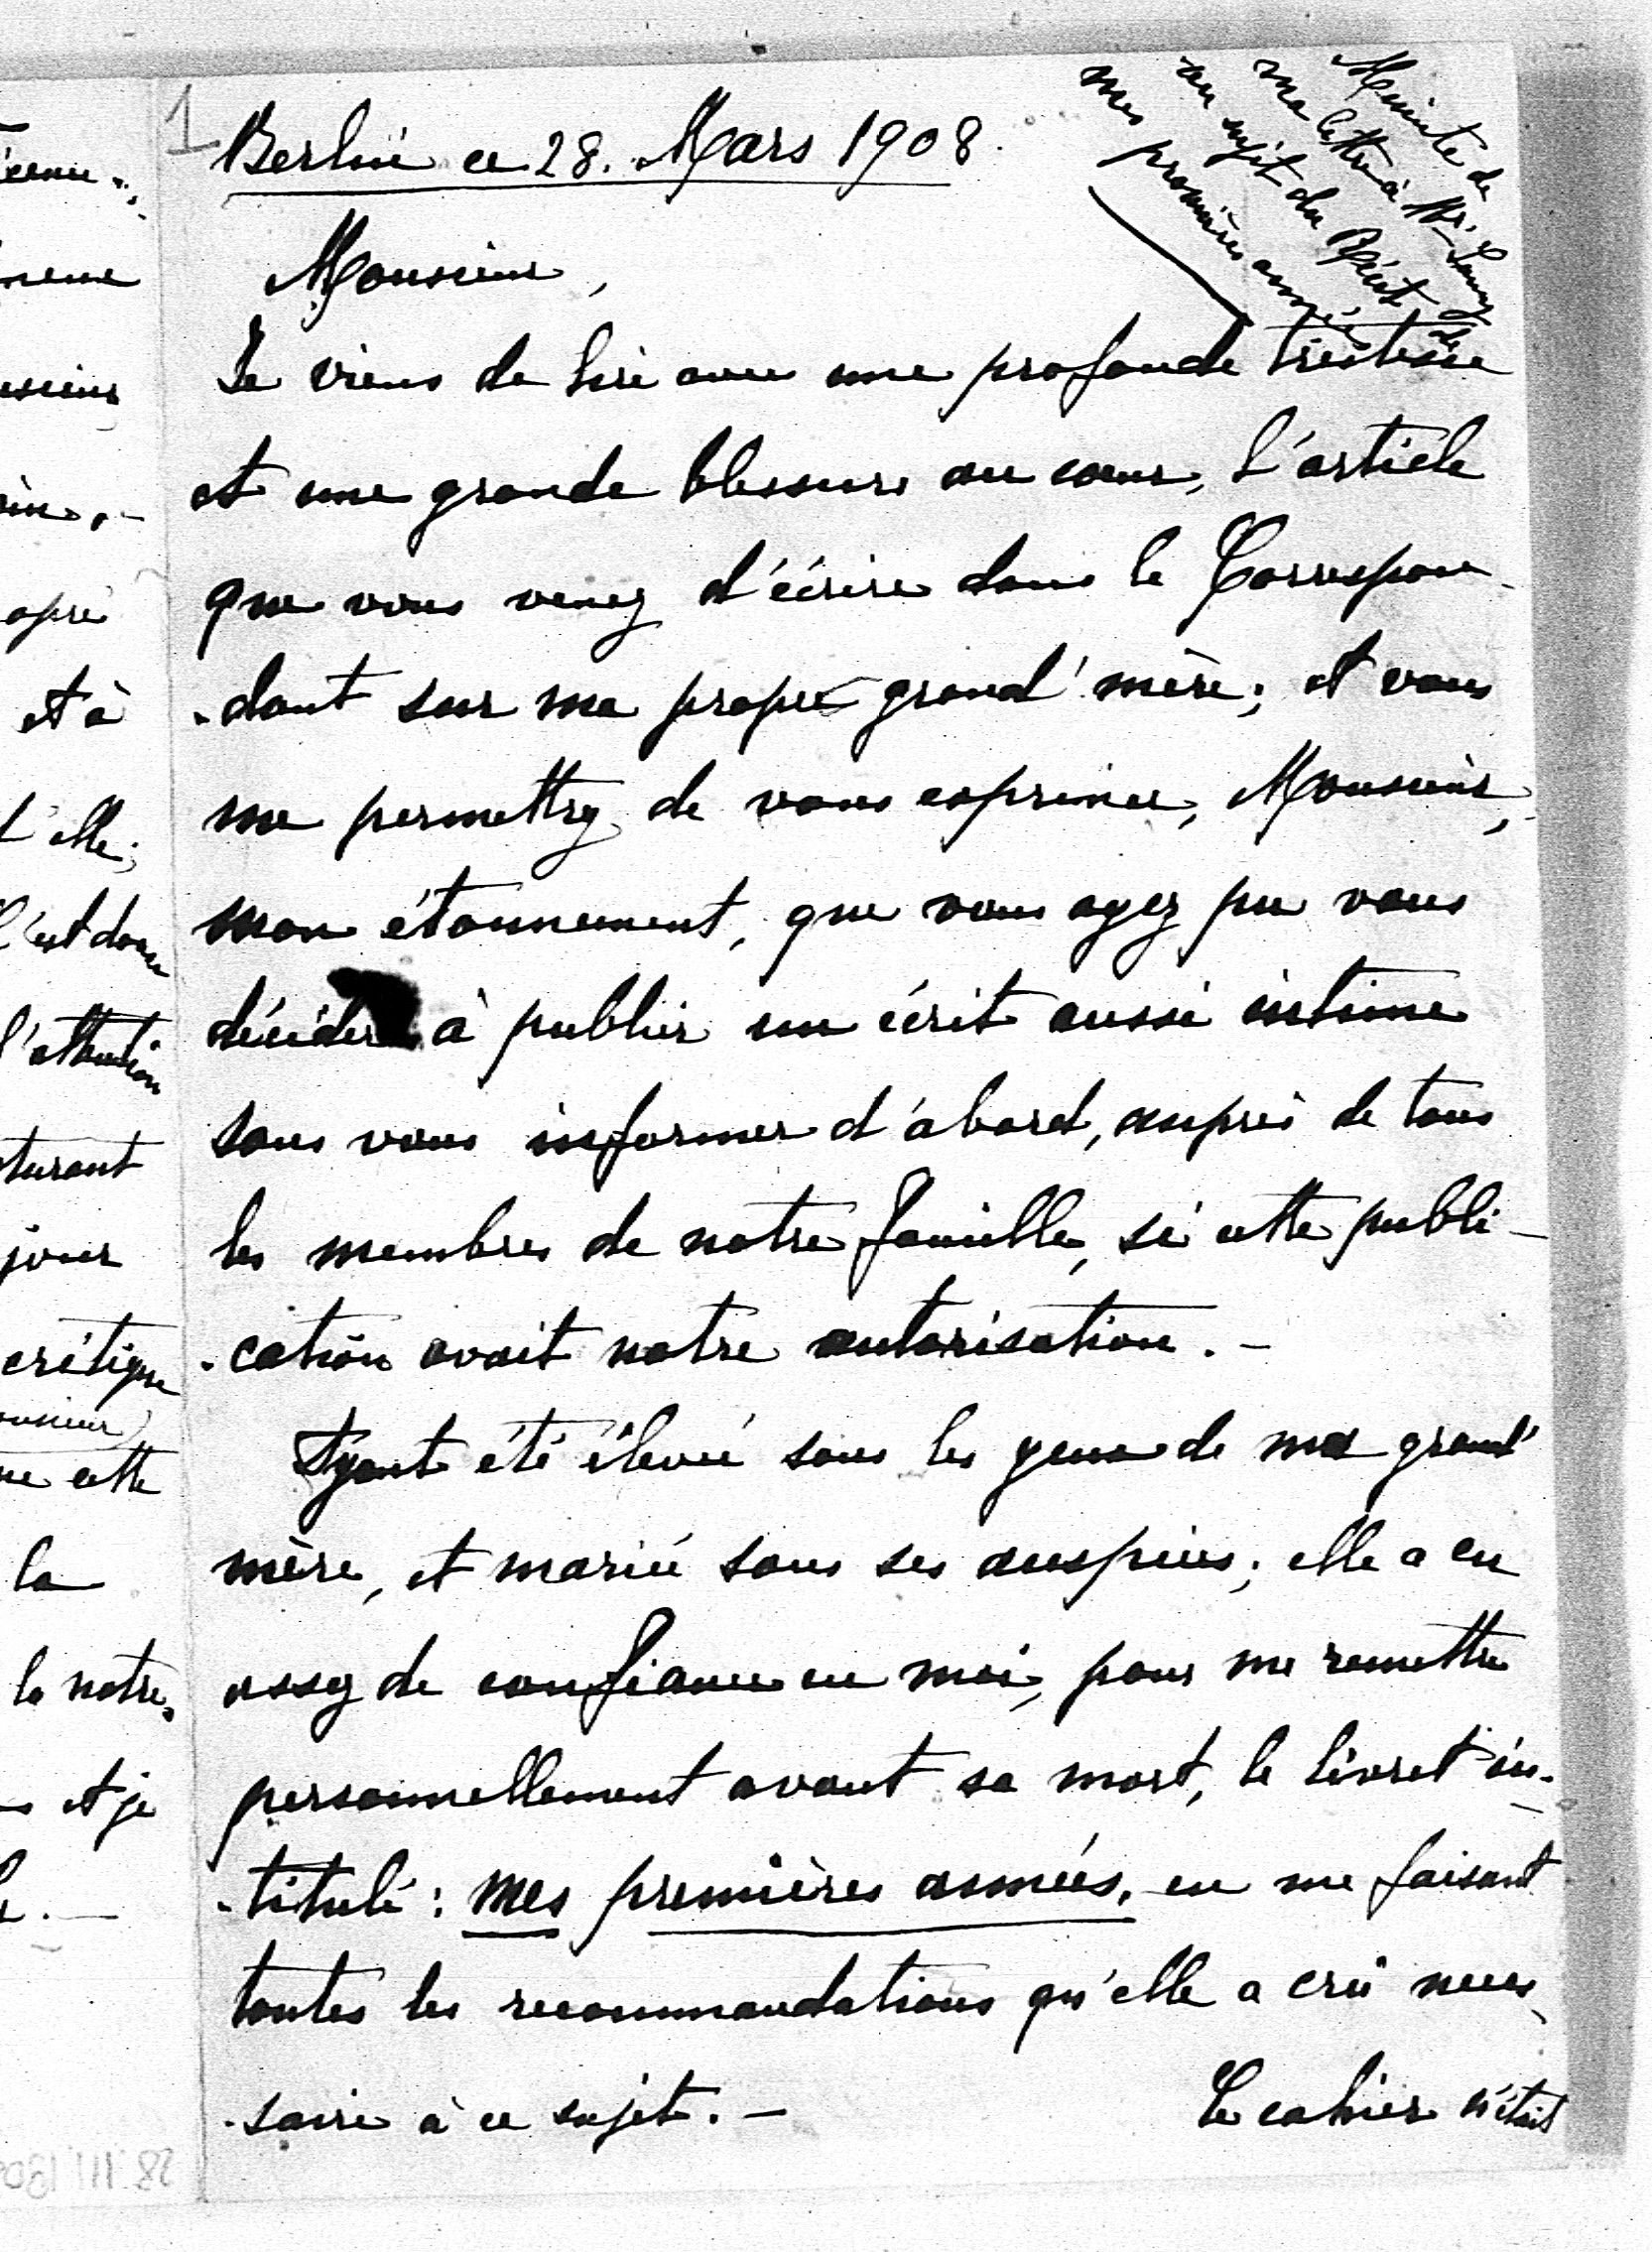 1
Berlin ce 28. Mars 1908.
Minute de
ma lettre à Mr.
au sujet du Récit de
mes premières années
Monsieur,
Je viens de lire avec une profonde tristesse
et une grande blessure au cœur, l'article
que vous venez d'écrire dans le Correspon-
-dant sur ma propre grand'mère; et vous
me permettrez de vous exprimer, Monsieur,
mon étonnement, que vous ayez pu vous
décider à publier un écrit aussi intime
sans vous informer d'abord, auprès de tous
les membres de notre famille, si cette publi-
-cation avait notre autorisation. -
Ayant été élevée sous les yeux de ma grand'
mère, et mariée sous ses auspices; elle a eu
assez de confiance en moi, pour me remettre
personnellement avant sa mort, le livret in-
-titulé: mes premières années, en me faisant
toutes les recommandations qu'elle a crû néces-
-saire à ce sujet. - Le cahier n'était
et à
d'elle;
C'est donc
l'attention
jour
critique
cette
la
la notre,
et je
28 III 190